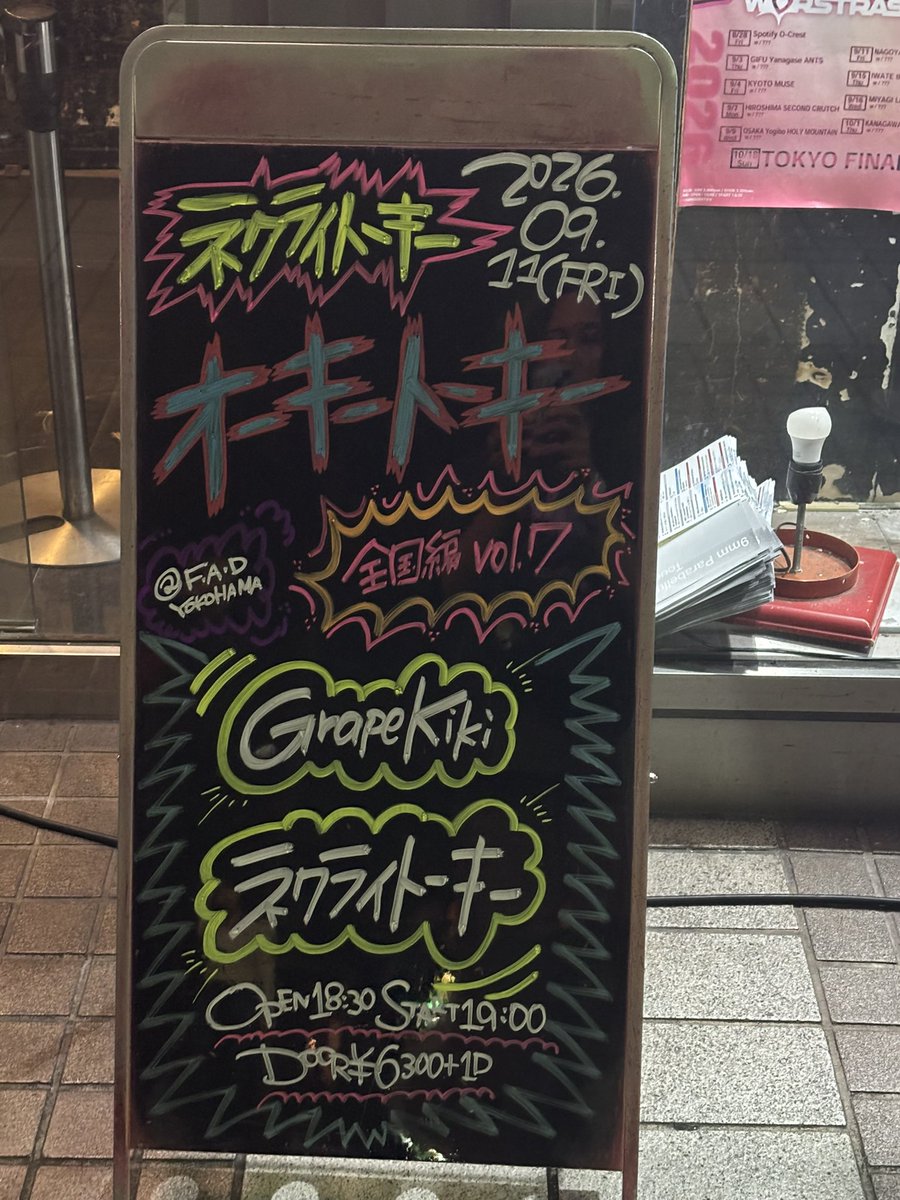 ネクライトーキー
2026.
09.
11(FRI)
オーキートーキー
@F.A.D
YOKOHAMA
全国編 vol.7
GrapeKiki
ネクライトーキー
OPEN18:30 START19:00
DOOR¥6300+1D
WORSTRAS
2026
8/28 Fri Spotify O-Crest
w/???
9/3 Thu GIFU Yanagase ANTS
w/???
9/4 Fri KYOTO MUSE
w/???
9/7 Mon HIROSHIMA SECOND CRUTCH
w/???
9/9 Wed OSAKA Yogibo HOLY MOUNTAIN
9/11 Fri NAGOYA
w/???
9/15 IWATE
w/???
9/16 Wed MIYAGI
w/???
10/1 Thu KANAGAWA
w/???
10/18 Sun TOKYO FINAL
9mm Parabellu
Tou